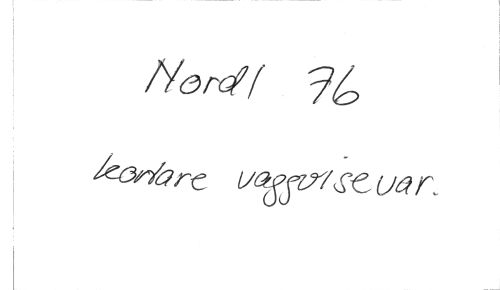 Nordl 76
kortare vaggvisevar.